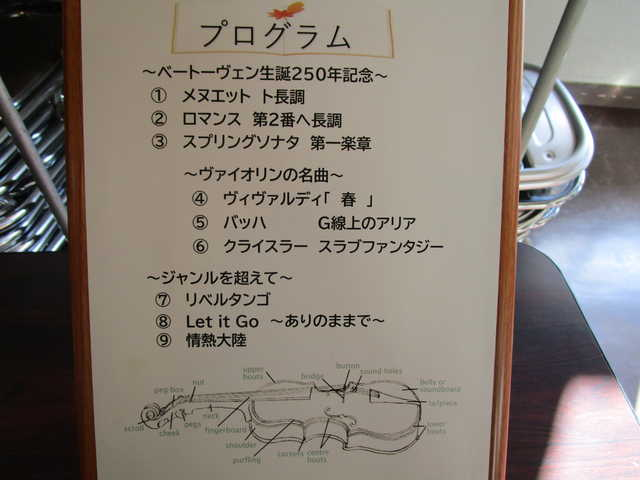 プログラム
～ベートーヴェン生誕250年記念～
① メヌエット ト長調
② ロマンス 第2番ヘ長調
③ スプリングソナタ 第一楽章
～ヴァイオリンの名曲～
④ ヴィヴァルディ「 春 」
⑤ バッハ G線上のアリア
⑥ クライスラー スラブファンタジー
～ジャンルを超えて～
⑦ リベルタンゴ
⑧ Let it Go ～ありのままで～
⑨ 情熱大陸
upper bouts
bridge
button
sound holes
belly or soundboard
tailpiece
lower bouts
peg box
nut
scroll
cheek
pegs
neck
fingerboard
shoulder
purfling
corners
centre bouts